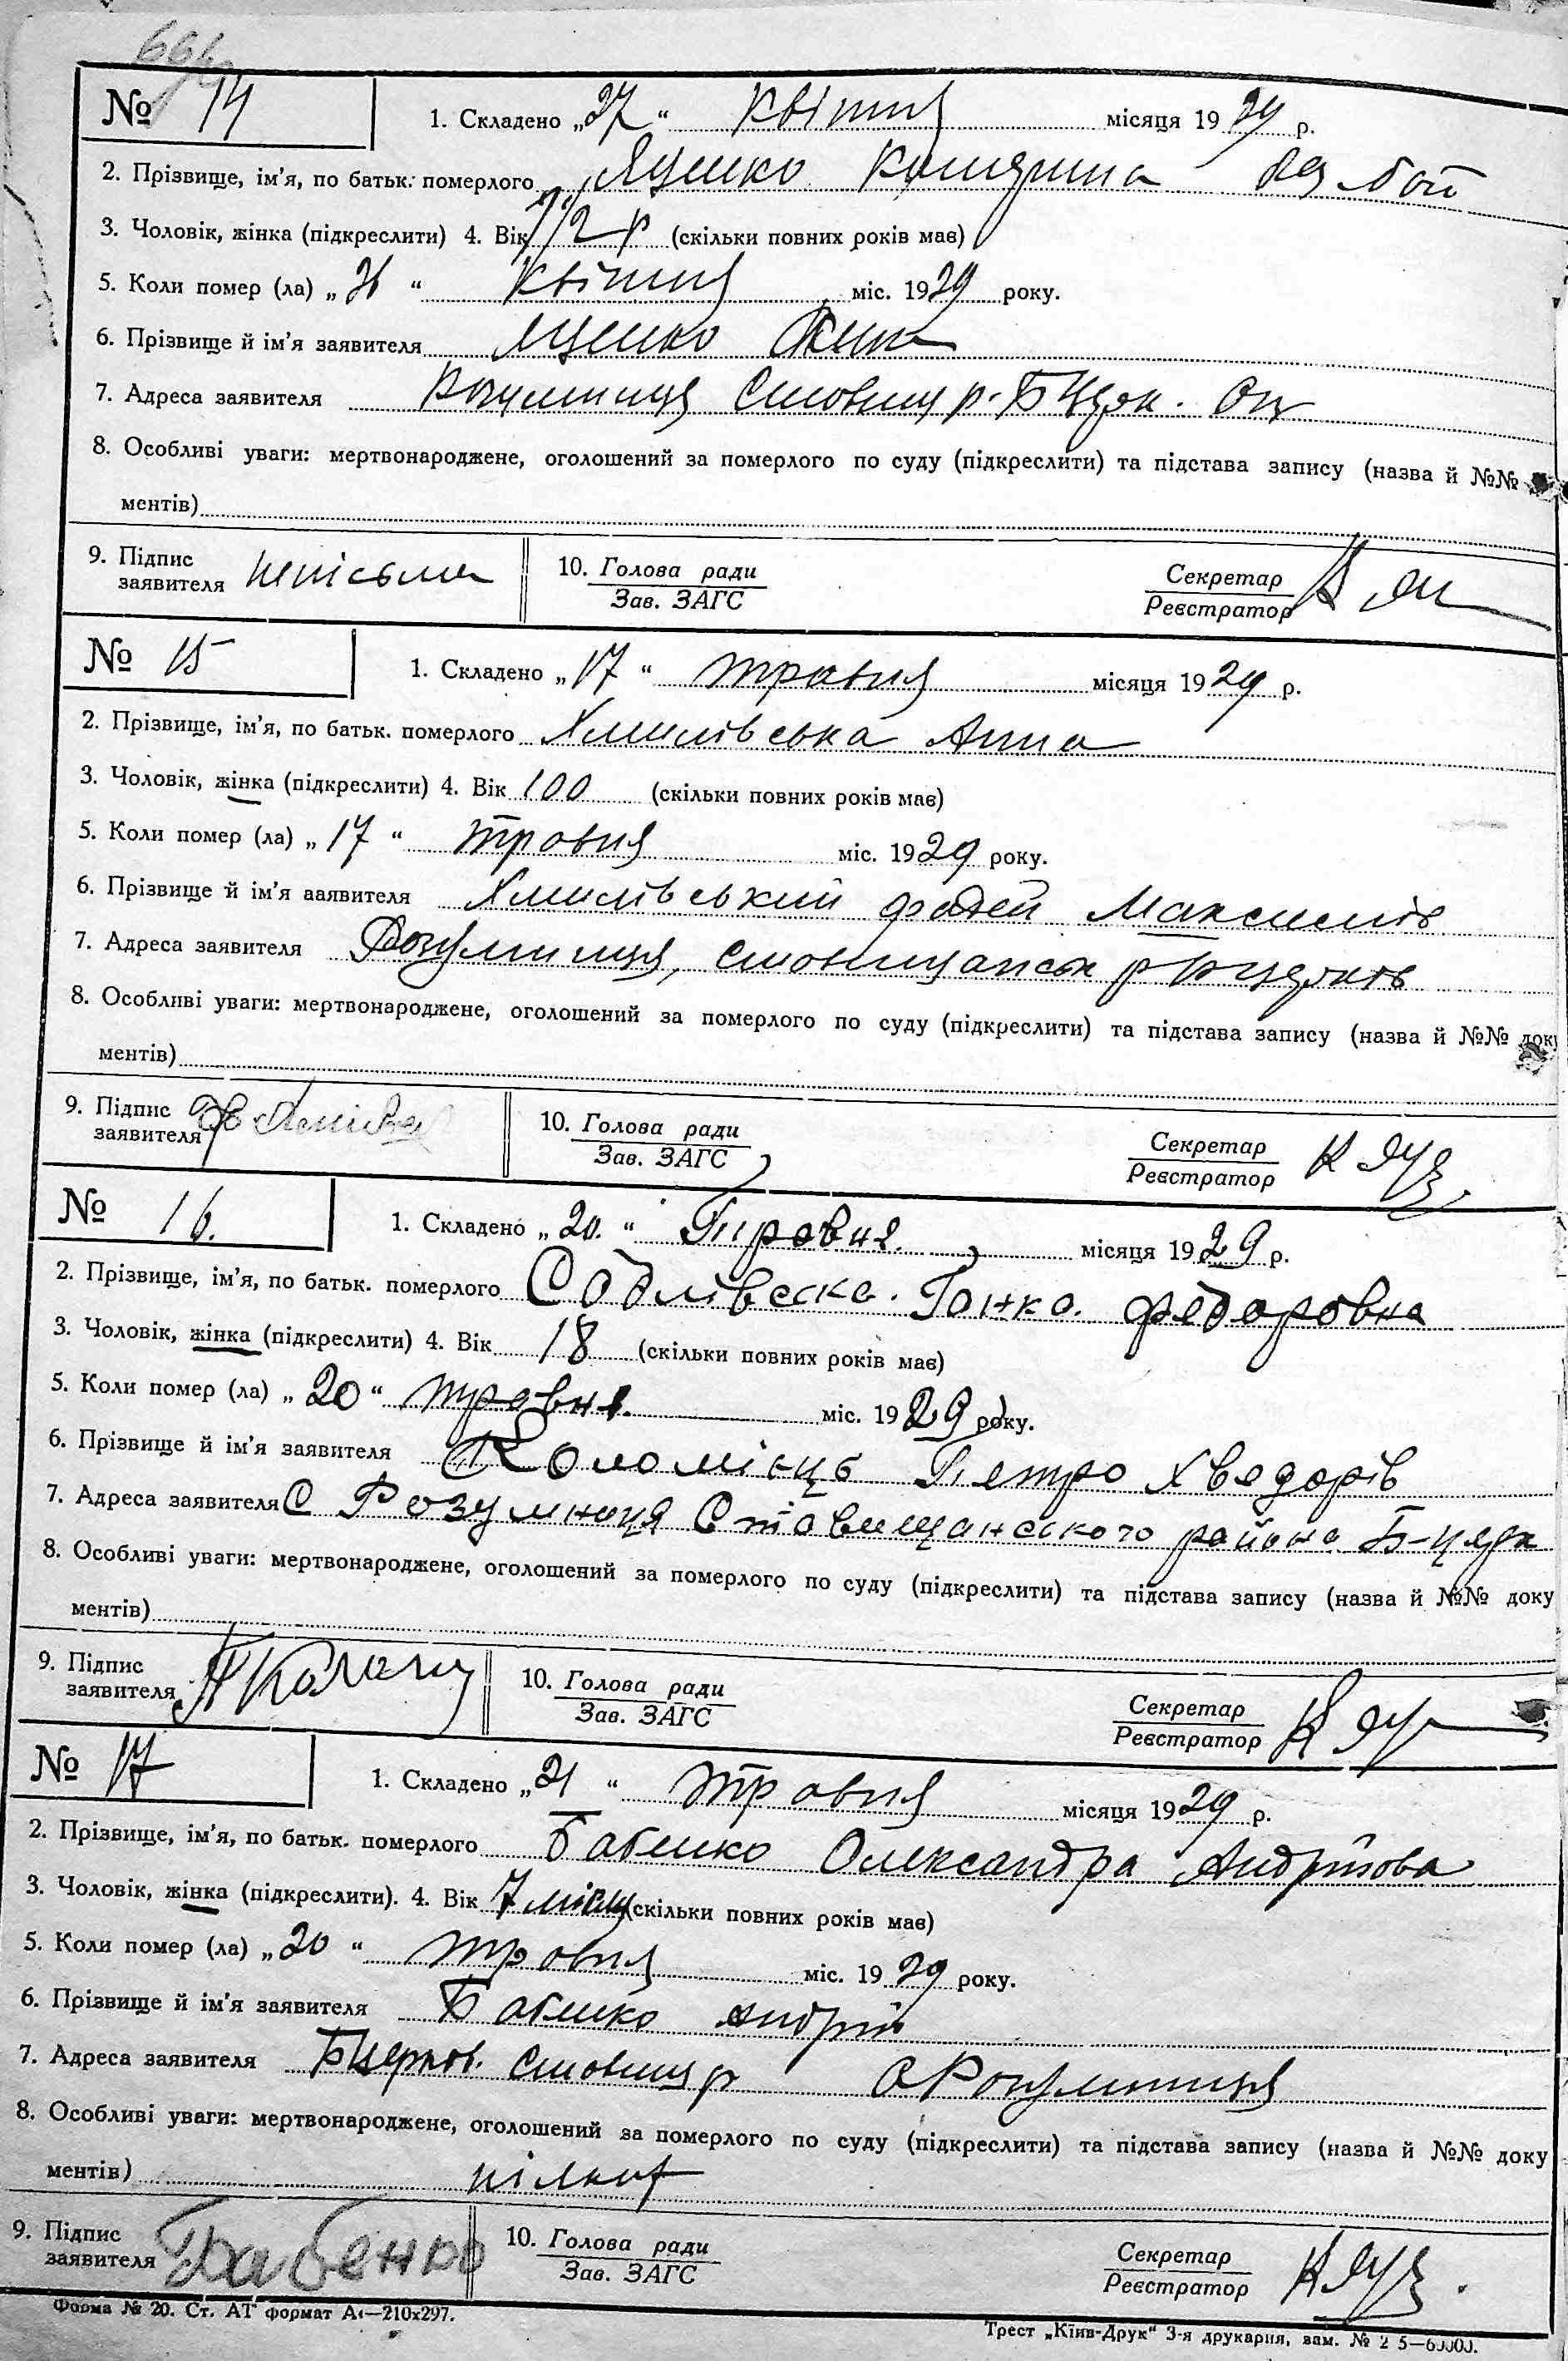 № 14 1. Складено „27“ Квітня місяця 1929 р.
2. Прізвище, ім'я, по батьк. померлого Яценко
3. Чоловік, жінка (підкреслити) 4. Вік 1/2 р (скільки повних років має)
5. Коли помер (ла) „26“ Квітня міс. 1929 року.
6. Прізвище й ім'я заявителя Яценко
7. Адреса заявителя Розумниця Ставищ р. Б Церк. Окр
8. Особливі уваги: мертвонароджене, оголошений за померлого по суду (підкреслити) та підстава запису (назва й №№
ментів)
9. Підпис заявителя неписьмен 10. Голова ради Зав. ЗАГС Секретар Реєстратор
№ 15 1. Складено „17“ травня місяця 1929 р.
2. Прізвище, ім'я, по батьк. померлого Хмилівська Анна
3. Чоловік, жінка (підкреслити) 4. Вік 100 (скільки повних років має)
5. Коли помер (ла) „17“ травня міс. 1929 року.
6. Прізвище й ім'я заявителя Хмилівський Фадей Максимів
7. Адреса заявителя Розумниця, Ставищанськ р Б церків
8. Особливі уваги: мертвонароджене, оголошений за померлого по суду (підкреслити) та підстава запису (назва й №№ доку
ментів)
9. Підпис заявителя 10. Голова ради Зав. ЗАГС Секретар Реєстратор К Яц
№ 16. 1. Складено „20.“ Травня. місяця 1929 р.
2. Прізвище, ім'я, по батьк. померлого Садлівска. Ганка. Федоровна
3. Чоловік, жінка (підкреслити) 4. Вік 18 (скільки повних років має)
5. Коли помер (ла) „20“ травня. міс. 1929 року.
6. Прізвище й ім'я заявителя Коломієць Петро Хведорів
7. Адреса заявителя С Розумниця Ставищанського района Б-церк
8. Особливі уваги: мертвонароджене, оголошений за померлого по суду (підкреслити) та підстава запису (назва й №№ доку
ментів)
9. Підпис заявителя П Коломи 10. Голова ради Зав. ЗАГС Секретар Реєстратор К Яц
№ 17 1. Складено „21“ травня місяця 1929 р.
2. Прізвище, ім'я, по батьк. померлого Бабенко Олександра Андрійова
3. Чоловік, жінка (підкреслити). 4. Вік 7 місяц (скільки повних років має)
5. Коли помер (ла) „20“ травня міс. 1929 року.
6. Прізвище й ім'я заявителя Бабенко Андрій
7. Адреса заявителя Б церков. Ставищ р С Розумниця
8. Особливі уваги: мертвонароджене, оголошений за померлого по суду (підкреслити) та підстава запису (назва й №№ доку
ментів)
9. Підпис заявителя Бабенко 10. Голова ради Зав. ЗАГС Секретар Реєстратор К Яц.
Форма № 20. Ст. АТ формат А4—210х297.
Трест „Київ-Друк“ 3-я друкарня, зам. №